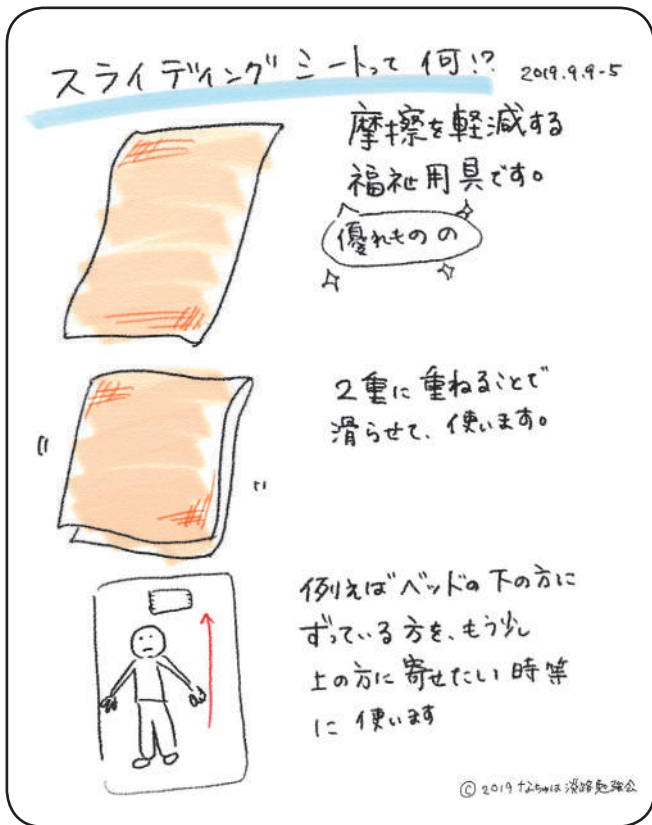 スライディングシートって何!?
2019.9.9-5
摩擦を軽減する
福祉用具です。
優れものの
2重に重ねることで
滑らせて、使います。
例えばベッドの下の方に
ずっている方を、もう少し
上の方に寄せたい時等
に使います
© 2019 なちゅは淡路勉強会